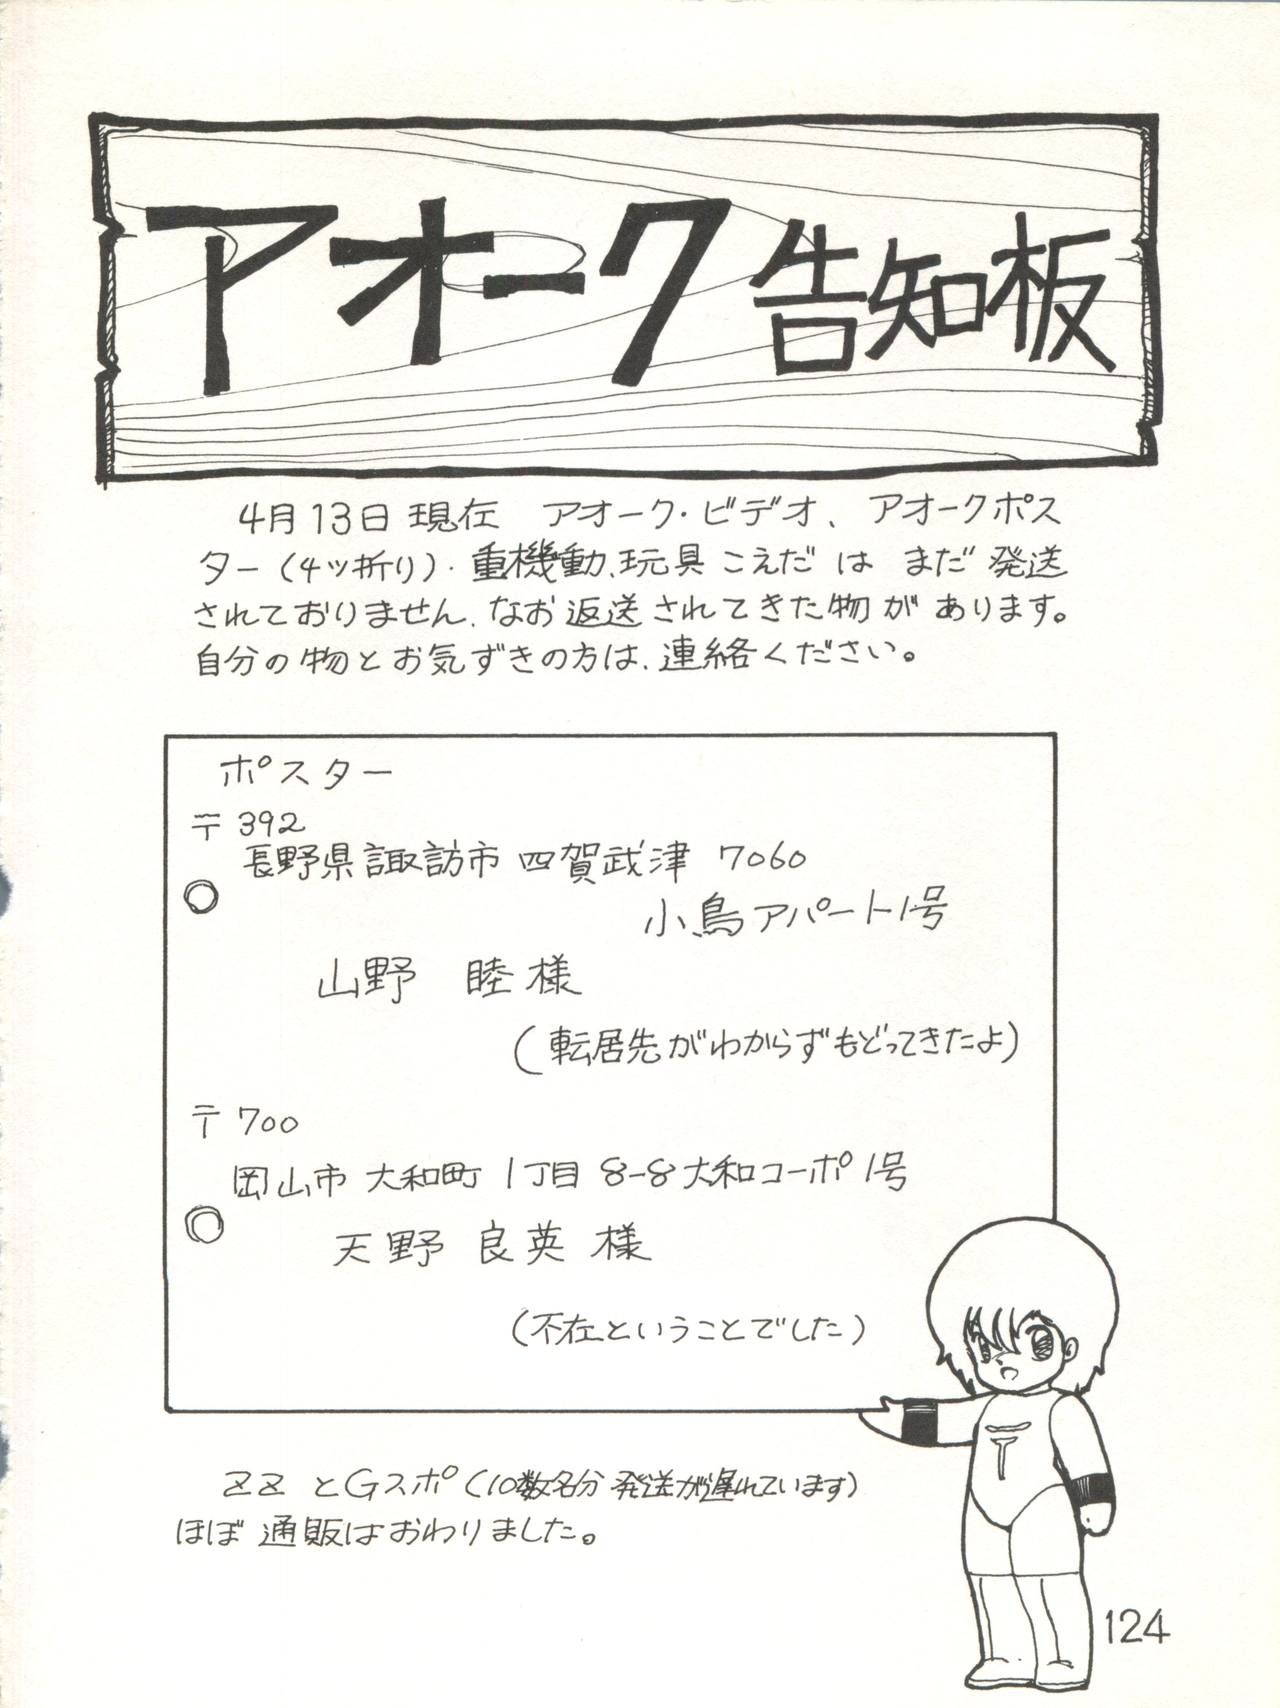 アオーク告知板
4月13日現在 アオーク・ビデオ、アオークポス
ター(4ツ折り)・重機動、玩具こえだは まだ発送
されておりません、なお返送されてきた物があります。
自分の物とお気ずきの方は、連絡ください。
ポスター
〒392
長野県諏訪市四賀武津 7060
小鳥アパート1号
山野 睦様
(転居先がわからずもどってきたよ)
〒700
岡山市 大和町 1丁目 8-8 大和コーポ1号
天野 良英様
(不在ということでした)
〒
ZZとGスポ(10数名分発送が遅れています)
ほぼ通販はおわりました。
124